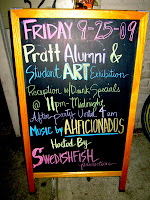 FRIDAY 9-25-09
Pratt Alumni &
Student ART Exhibition
Reception w/ Drink Specials
@ 11pm-Midnight
After-party Until 4am
Music by AHFICIONADUS
Hosted By
SWEDISHFISH